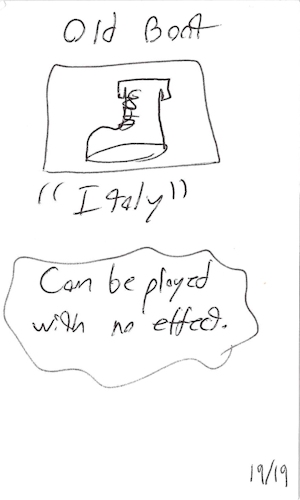 Old Boot
"Italy"
Can be played
with no effect.
19/19